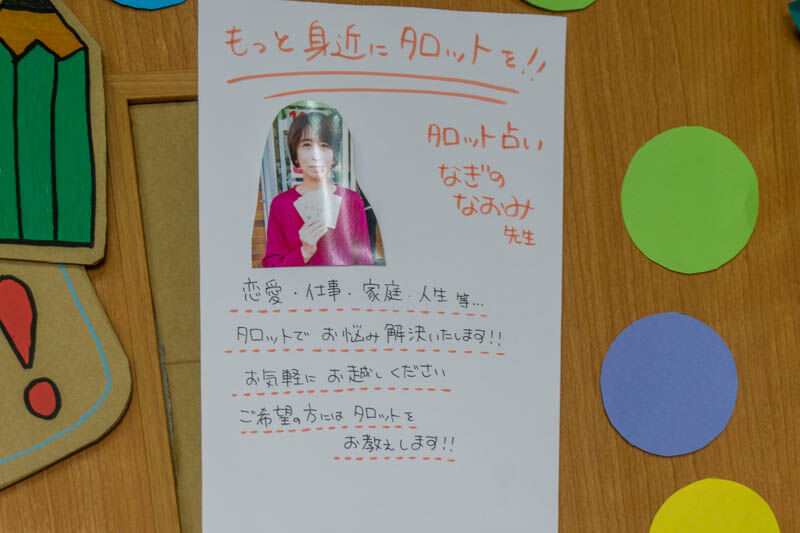 もっと身近にタロットを!!
タロット占い
なぎの
なおみ
先生
恋愛・仕事・家庭・人生 等…
タロットで お悩み解決いたします!!
お気軽に お越しください
ご希望の方には タロットを
お教えします!!